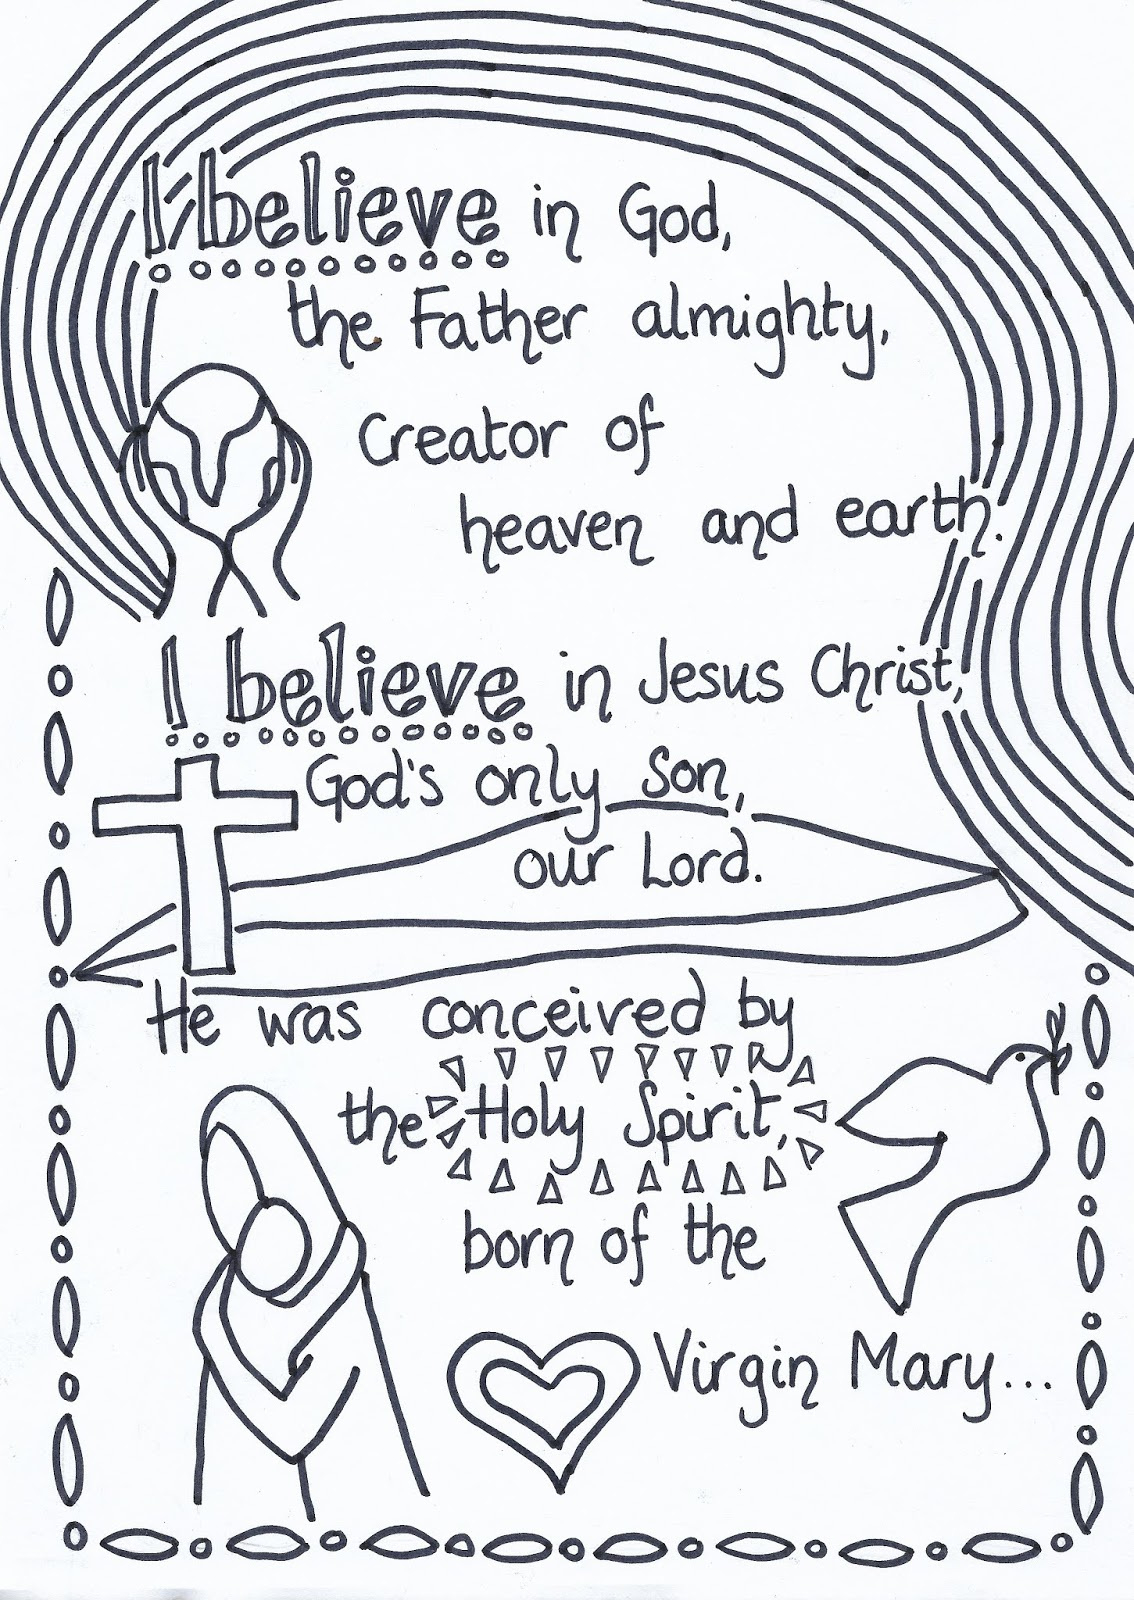 I believe in God,
the Father almighty,
Creator of
heaven and earth.
I believe in Jesus Christ,
God's only Son,
our Lord.
He was conceived by
the Holy Spirit,
born of the
Virgin Mary...